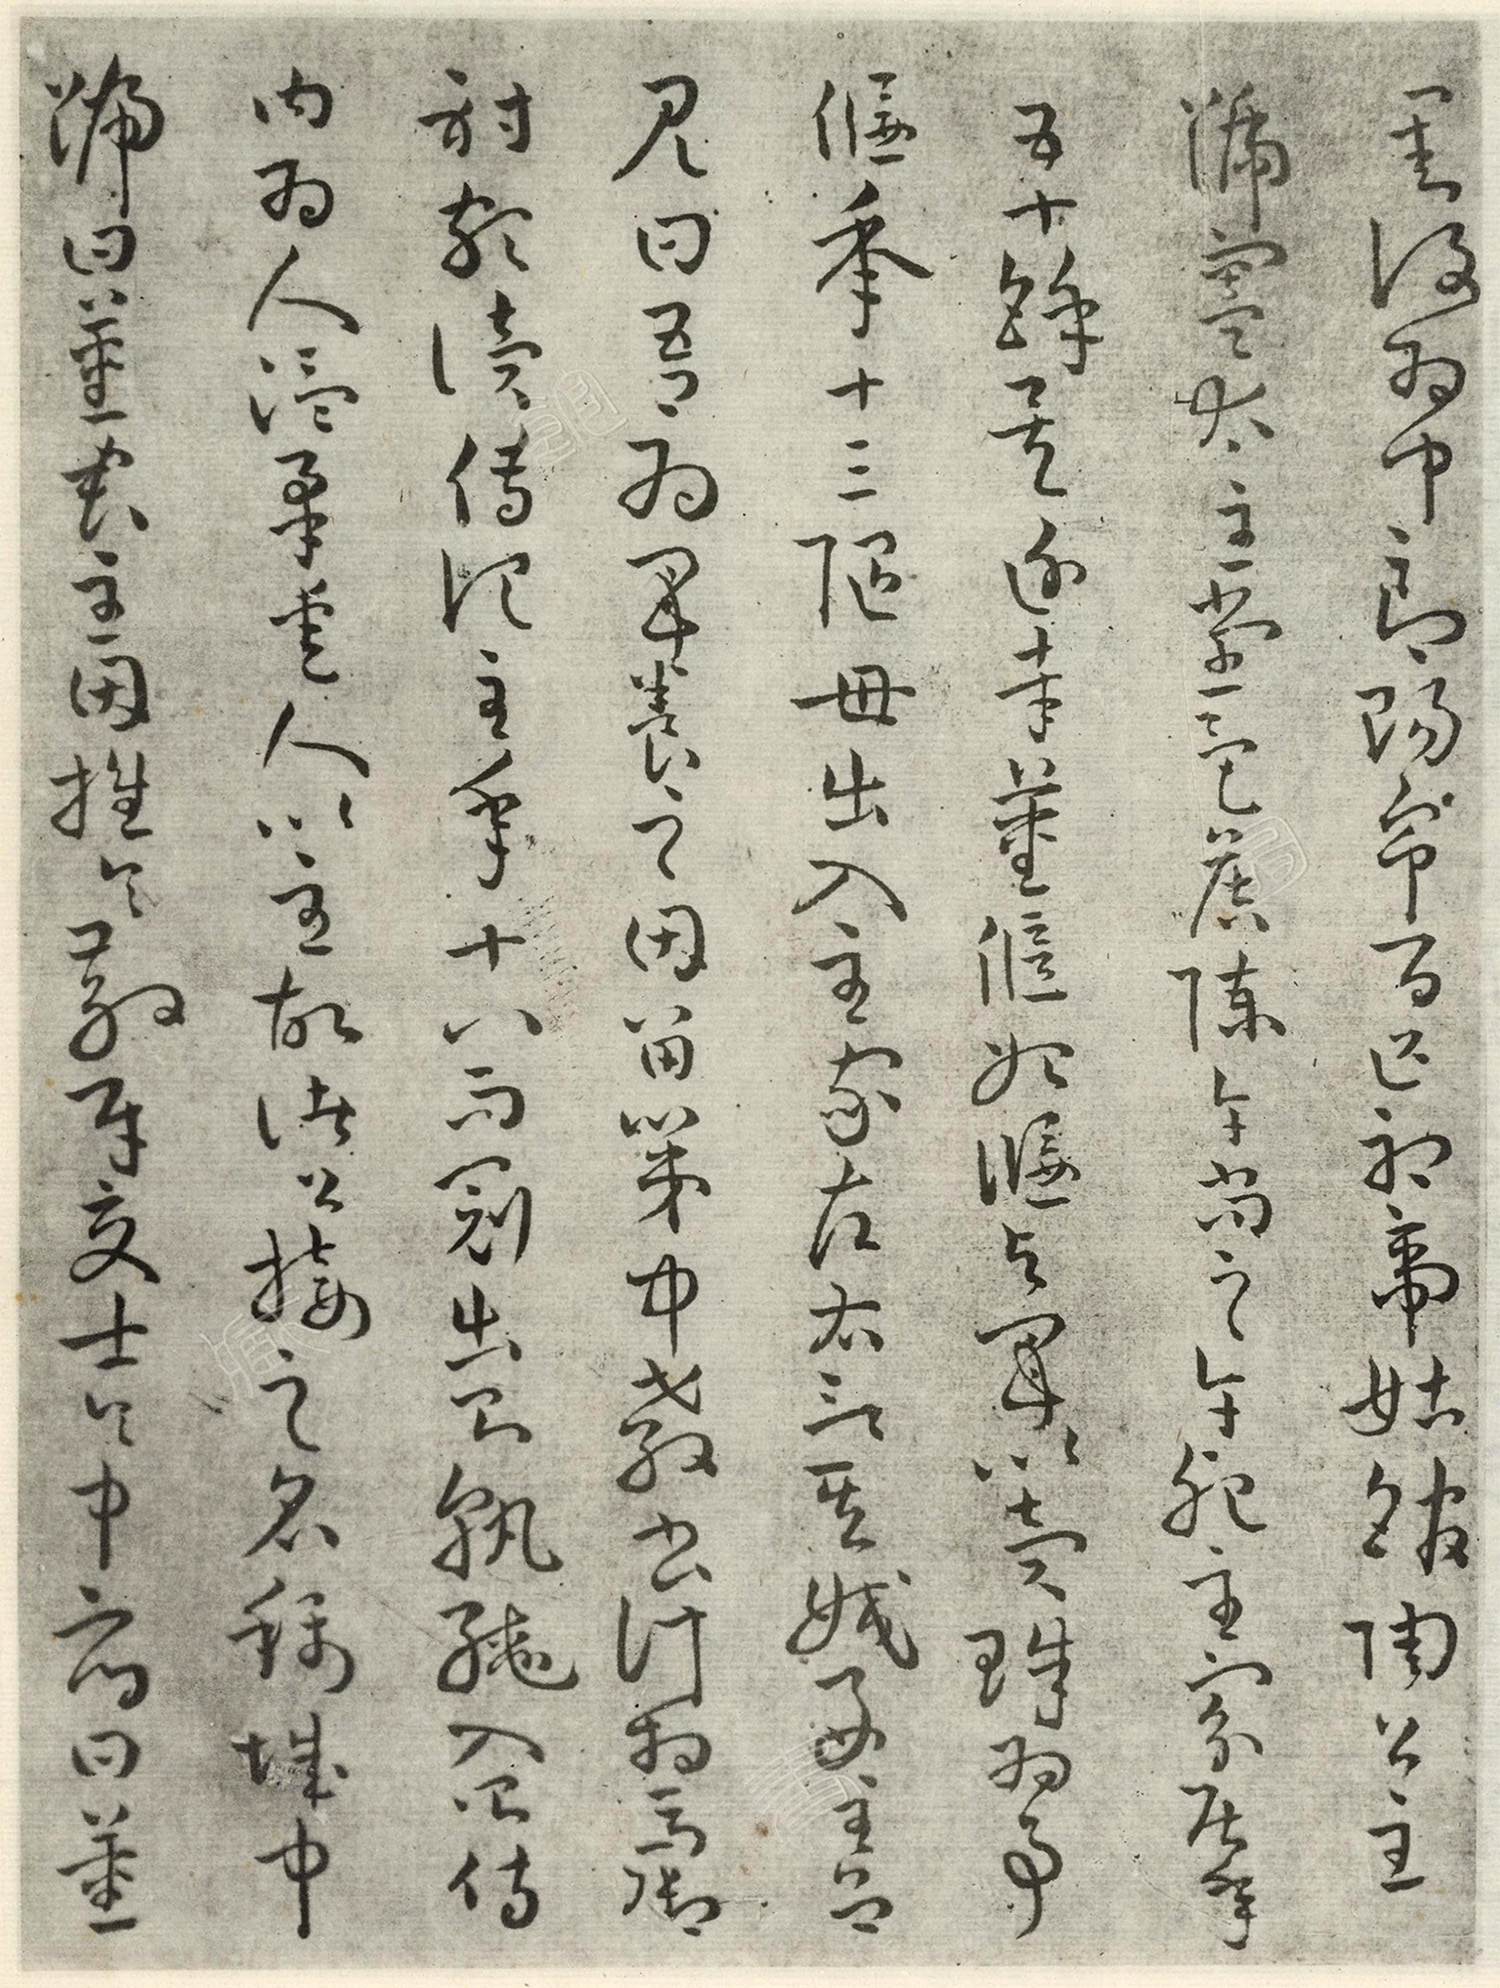 署復為中郎賜帛百疋初帝姑館陶公主
號竇太主堂邑侯陳午尚之午死主寡居年
五十餘矣近幸董偃始偃與母以賣珠為事
偃年十三隨母出入主家左右言其姣好主召
見曰吾為母養之因留第中教書計相馬御
射頗讀傳記至年十八而冠出則執轡入則侍
內為人溫柔愛人以主故諸公接之名稱城中
號曰董君主因推令散財交士令中府曰董